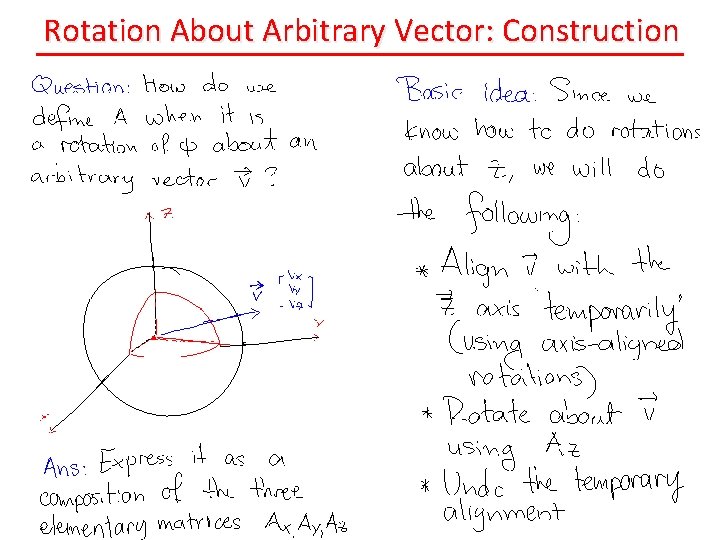 Rotation About Arbitrary Vector: Construction
Question: How do we
define A when it is
a rotation of φ about an
arbitrary vector v⃗ ?
z
v⃗
[Vx
Vy
Vz]
Y
x
Ans: Express it as a
composition of the three
elementary matrices Ax, Ay, Az
Basic idea: Since we
know how to do rotations
about z⃗, we will do
the following:
* Align v⃗ with the
z⃗ axis 'temporarily'
(using axis-aligned
rotations)
* Rotate about v⃗
using Az
* Undo the temporary
alignment